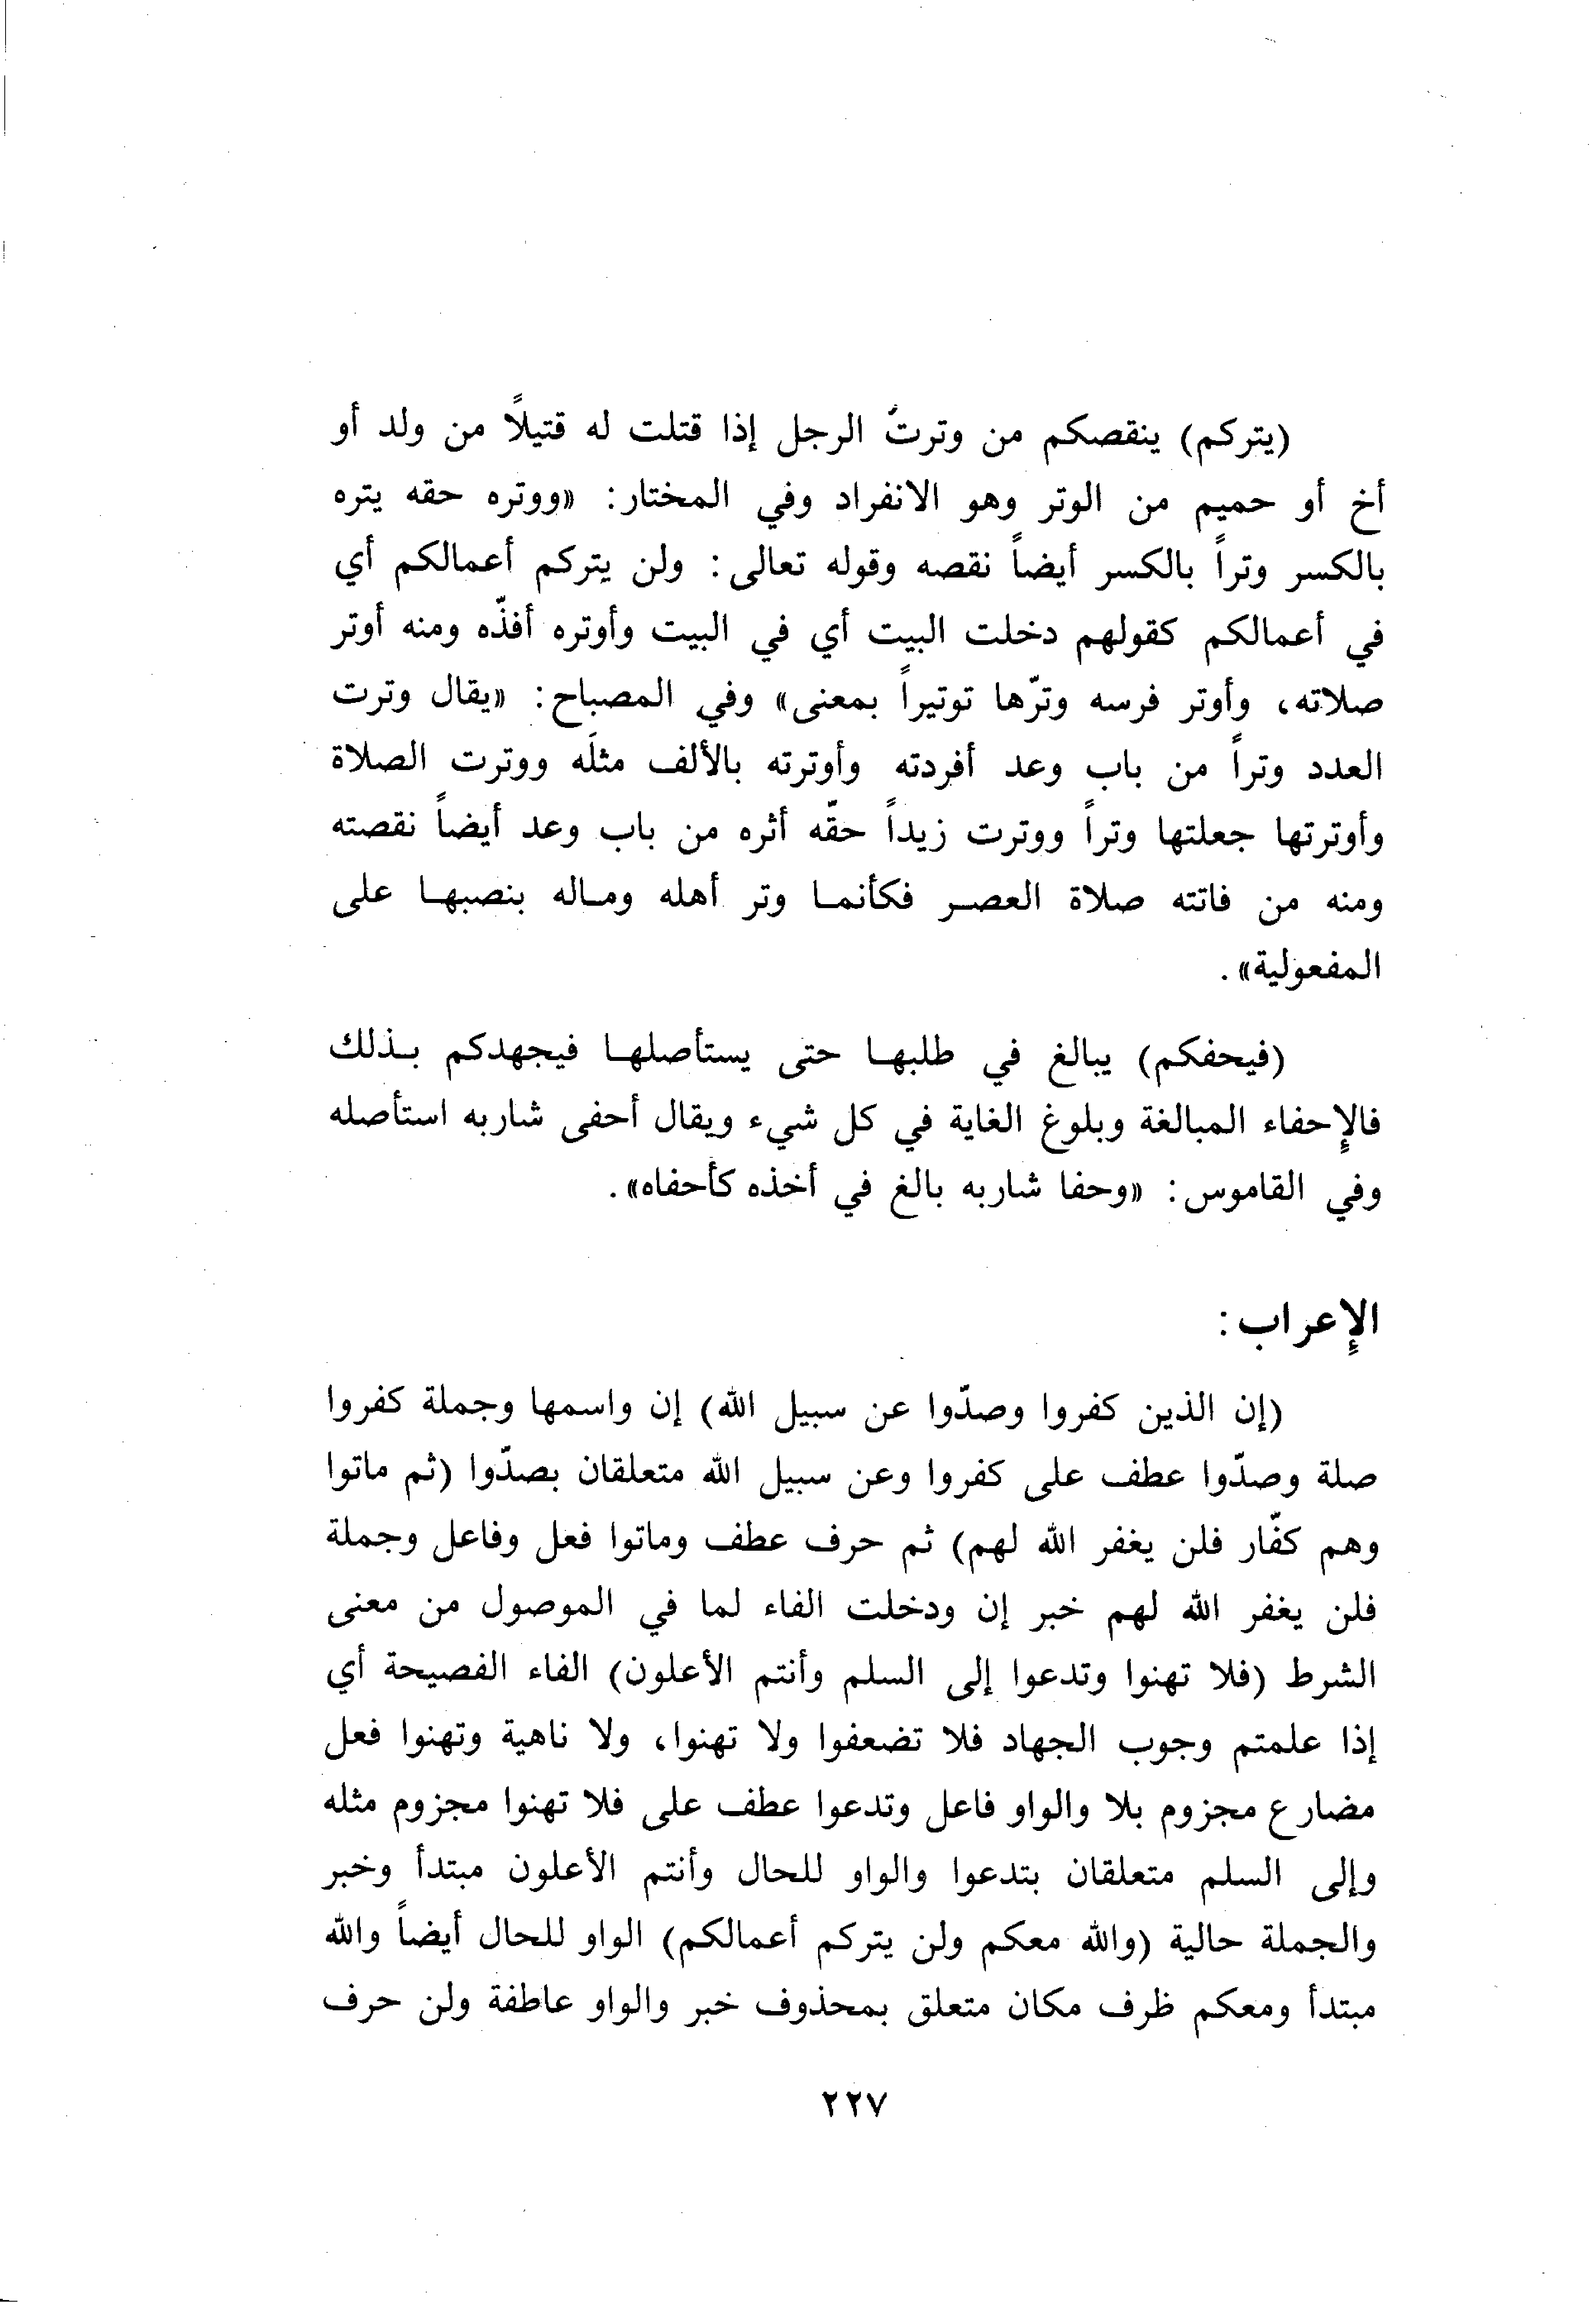 (يتركم) ينقصكم من وترتُ الرجل إذا قتلت له قتيلاً من ولد أو
أخ أو حميم من الوتر وهو الانفراد وفي المختار: «ووتره حقه يتره
بالكسر وتراً بالكسر أيضاً نقصه وقوله تعالى: ولن يتركم أعمالكم أي
في أعمالكم كقولهم دخلت البيت أي في البيت وأوتره أفذّه ومنه أوتر
صلاته، وأوتر فرسه وترّها توتيراً بمعنى» وفي المصباح: «يقال وترت
العدد وتراً من باب وعد أفردته وأوترته بالألف مثلَه ووترت الصلاة
وأوترتها جعلتها وتراً ووترت زيداً حقّه أثره من باب وعد أيضاً نقصته
ومنه من فاتته صلاة العصر فكأنما وتر أهله وماله بنصبها على
المفعولية».
(فيحفكم) يبالغ في طلبها حتى يستأصلها فيجهدكم بذلك
فالإِحفاء المبالغة وبلوغ الغاية في كل شيء ويقال أحفى شاربه استأصله
وفي القاموس: «وحفا شاربه بالغ في أخذه كأحفاه».
الإِعراب:
(إن الذين كفروا وصدّوا عن سبيل الله) إن واسمها وجملة كفروا
صلة وصدّوا عطف على كفروا وعن سبيل الله متعلقان بصدّوا (ثم ماتوا
وهم كفّار فلن يغفر الله لهم) ثم حرف عطف وماتوا فعل وفاعل وجملة
فلن يغفر الله لهم خبر إن ودخلت الفاء لما في الموصول من معنى
الشرط (فلا تهنوا وتدعوا إلى السلم وأنتم الأعلون) الفاء الفصيحة أي
إذا علمتم وجوب الجهاد فلا تضعفوا ولا تهنوا، ولا ناهية وتهنوا فعل
مضارع مجزوم بلا والواو فاعل وتدعوا عطف على فلا تهنوا مجزوم مثله
وإلى السلم متعلقان بتدعوا والواو للحال وأنتم الأعلون مبتدأ وخبر
والجملة حالية (والله معكم ولن يتركم أعمالكم) الواو للحال أيضاً والله
مبتدأ ومعكم ظرف مكان متعلق بمحذوف خبر والواو عاطفة ولن حرف
٢٢٧